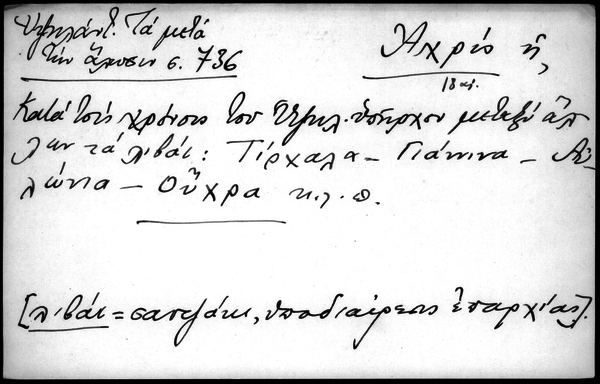 Ὑψηλάντ. Τά μετά
τήν ἅλωσιν σ. 736
Ἀχρίς ἡ,
18 αἰ.
Κατά τούς χρόνους τοῦ Ὑψηλ. ὑπῆρχον μεταξύ ἄλ
λων τά λιβάι: Τίρχαλα – Γιάννινα – Αὐ-
λώνια – Οὔχρα κ.λ.π.
[λιβάι = σαντζάκι, ὑποδιαίρεσις ἐπαρχίας].